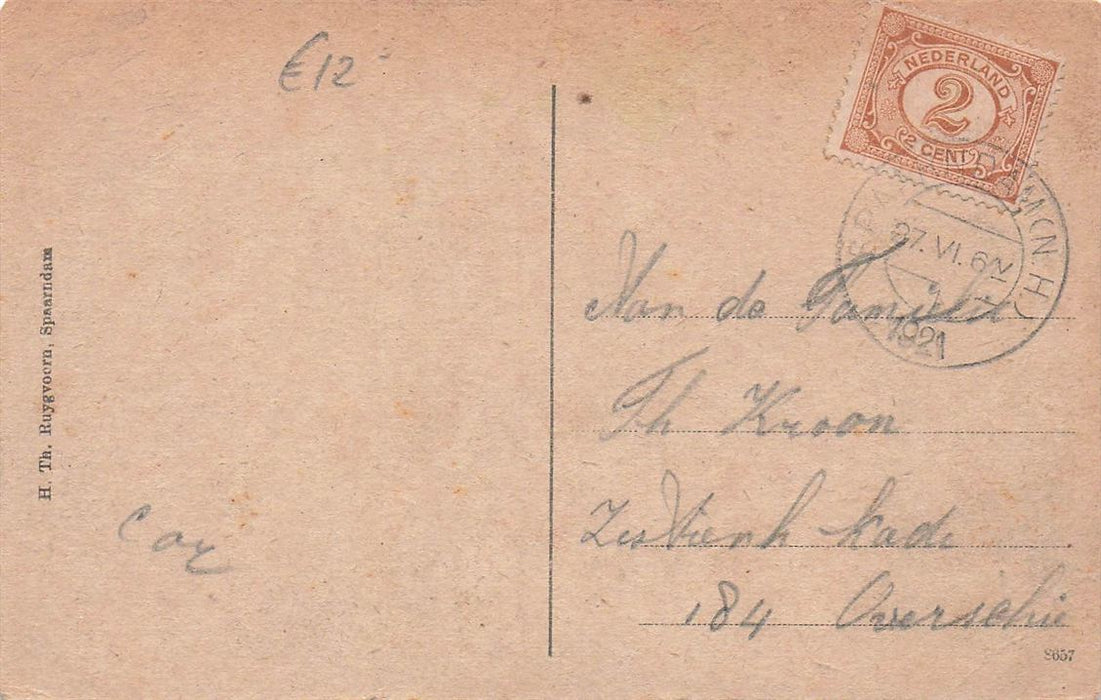 €12
H. Th. Ruygvoorn, Spaarndam
Cor
NEDERLAND
2
2 CENT
SPAARNDAM (N.H.)
27.VI.6N
1921
Aan de Familie
Th Kroon
kade
184 Overschie
8657